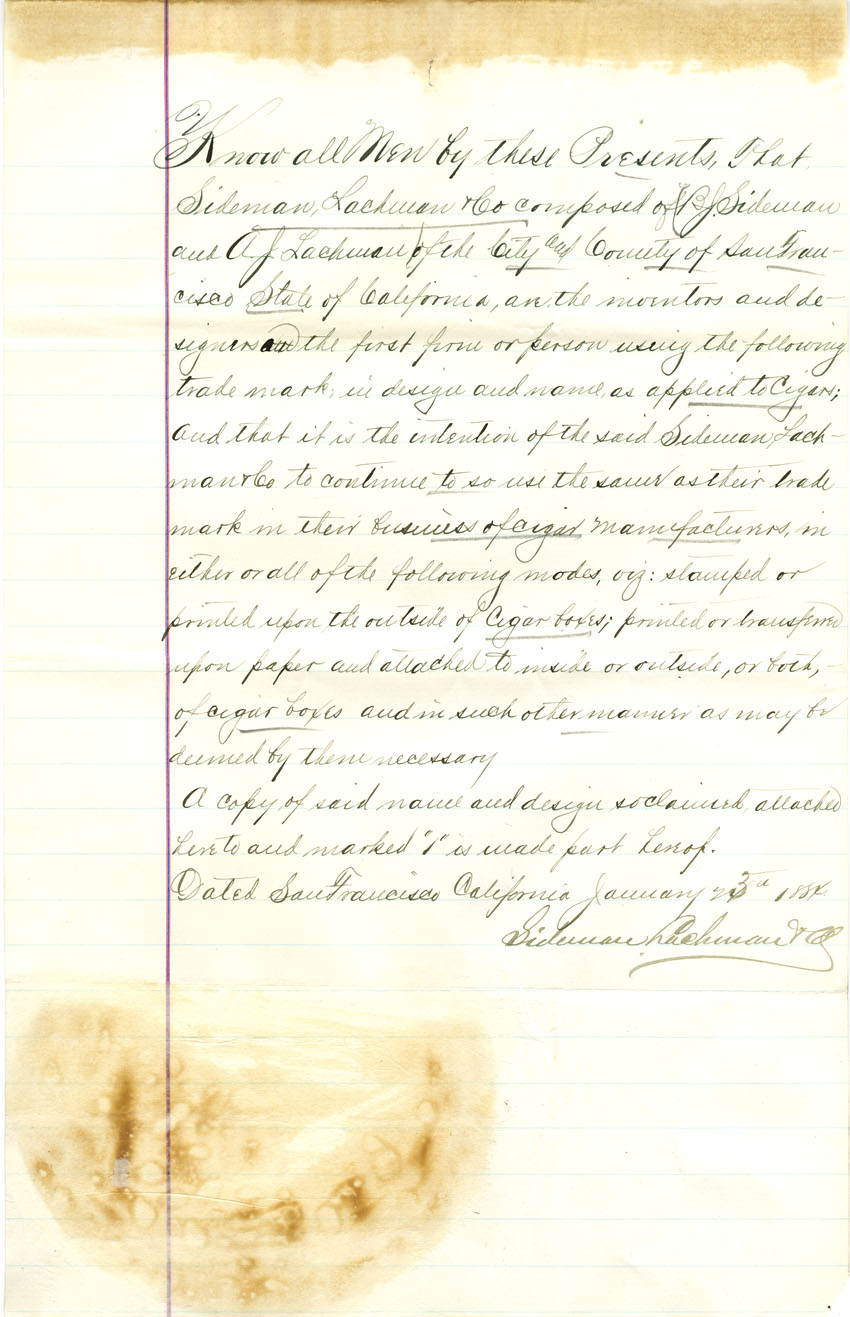 Know all Men by these Presents, That
Sideman, Lachman & Co composed of (B J. Sideman
and A J. Lachman) of the City and County of San Fran-
cisco State of California, are the inventors and de-
signers and the first firm or person using the following
trade mark, in design and name, as applied to Cigars;
And that it is the intention of the said Sideman, Lach-
man & Co to continue to so use the same as their trade
mark in their business of cigar manufacturers, in
either or all of the following modes, viz: stamped or
printed upon the outside of Cigar boxes; printed or transferred
upon paper and attached to inside or outside, or both,
of cigar boxes and in such other manner as may be
deemed by them necessary
A copy of said name and design so claimed, attached
hereto and marked "1" is made part hereof.
Dated San Francisco California January 1884
Sideman Lachman & Co